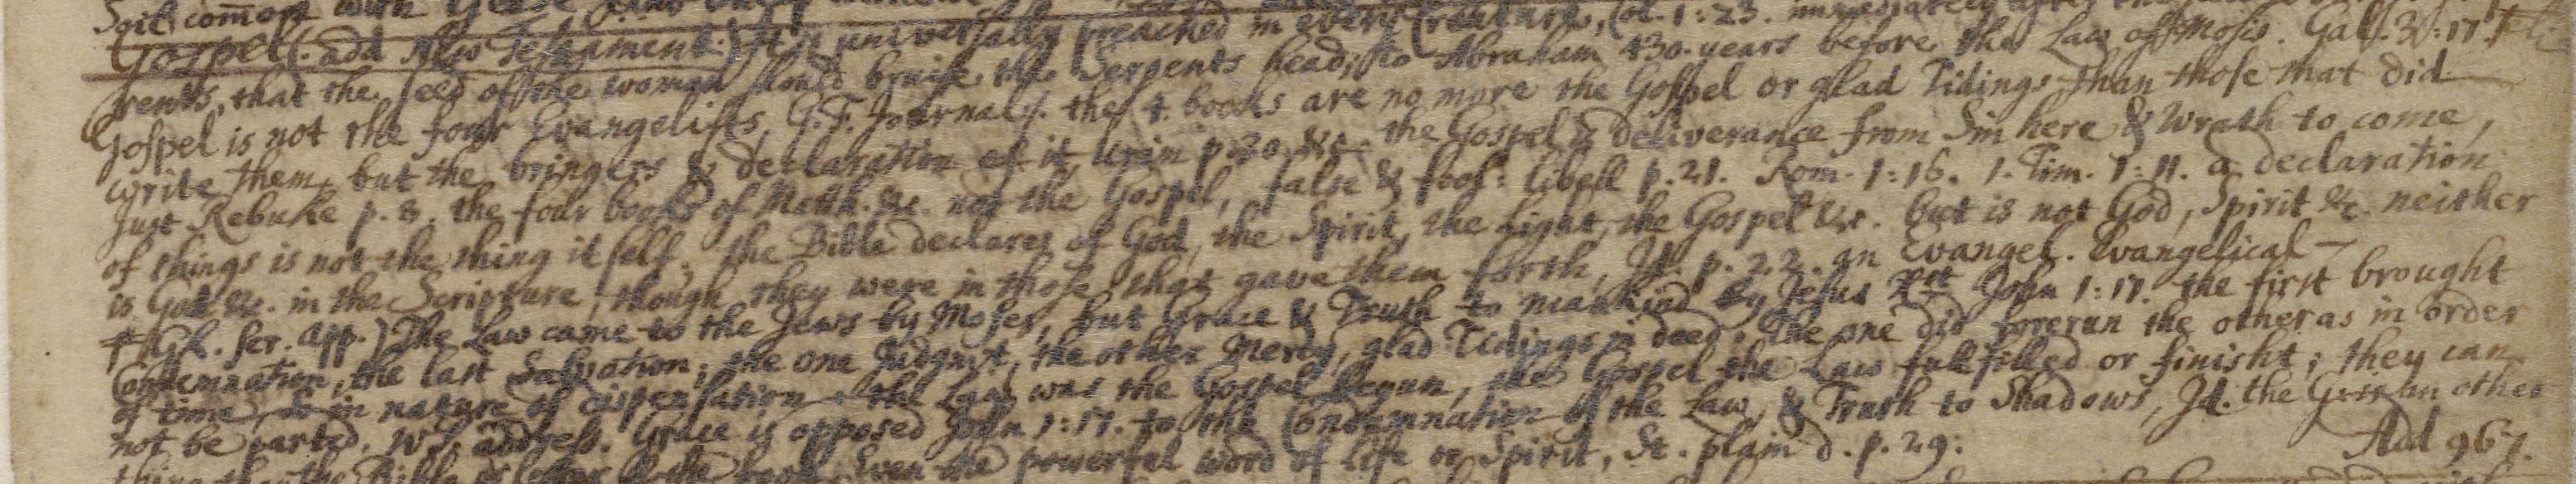 Gospel (: add New Testament:) It is universally preached in every Creature, Col. 1:23. immediately after the
rents, that the seed of the woman should bruise the Serpents head; to Abraham 430. years before the Law of Moses. Gal. 3:17.
Gospel is not the four Evangelists, G. F. Journal. the 4. books are no more the Gospel or glad Tidings than those that did
write them, but the bringers & declaration of it, p. 20. &c. the Gospel is deliverance from Sin here & Wrath to come,
Just Rebuke p. 8. the four books of Matth. &c. not the Gospel, false & fool: libell p. 21. Rom. 1:16. 1. Tim. 1:11. a declaration
of things is not the thing it self. the Bible declares of God, the Spirit, the Light, the Gospel &c. but is not God, Spirit &c. neither
is God &c. in the Scripture, though they were in those that gave them forth, Id. p. 22. an Evangel. Evangelical
The Law came to the Jews by Moses, but Grace & Truth to mankind by Jesus Xst John 1:17. the first brought
Condemnation, the last Salvation; the one Judgmt, the other Mercy, glad Tidings in deed. The one did forerun the other as in order
of time so in nature of dispensation the Law was the Gospel begun, the Gospel the Law fulfilled or finisht; they can
not be parted. W. P. address. Grace is opposed John 1:17. to the Condemnation of the Law, & Truth to Shadows, Id. the G: is an other
thing than the Bible or Even the powerful word of life or Spirit, St. plain d. p. 29.
Add 967.